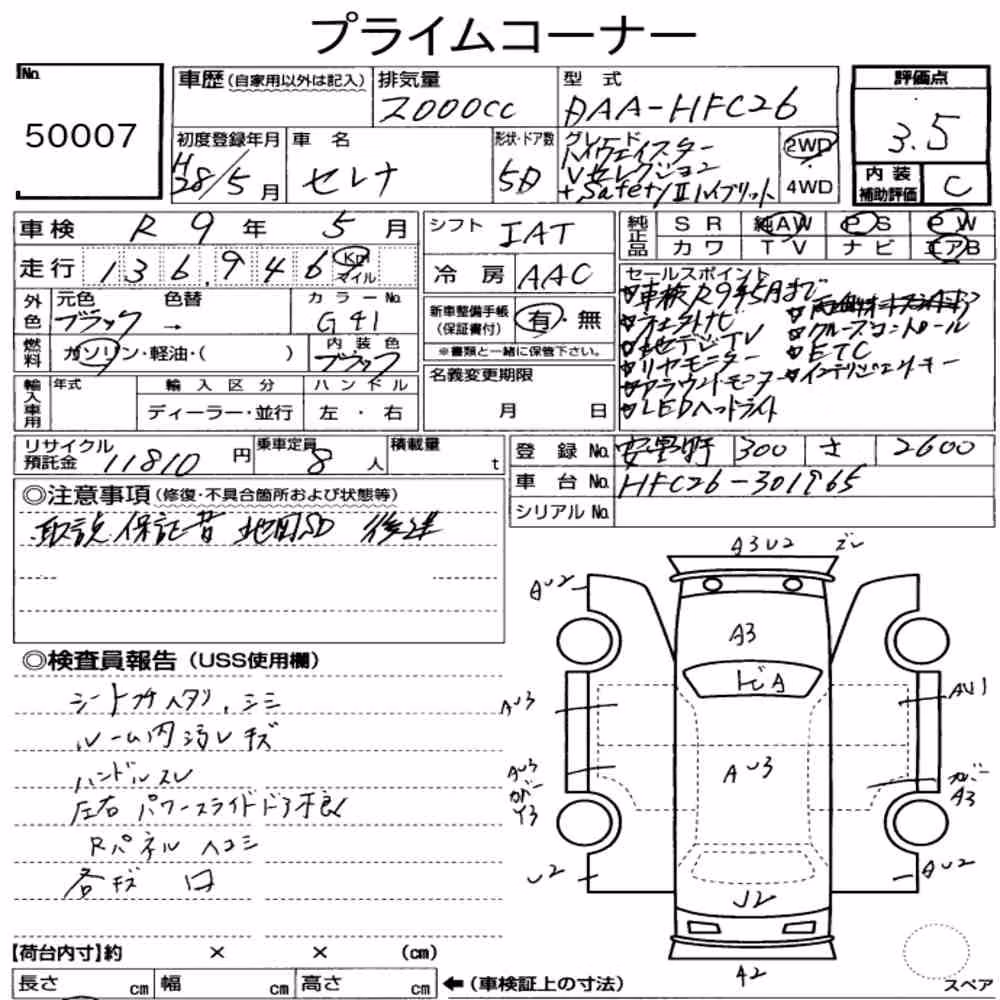 プライムコーナー
No.
50007
車歴(自家用以外は記入)
排気量
2000cc
型 式
DAA-HFC26
評価点
3.5
内装補助評価
C
初度登録年月
H28/5月
車 名
セレナ
形状・ドア数
5D
グレード
ハイウェイスター
Vセレクション
+SafetyⅡハイブリット
2WD
4WD
車検 R 9年 5月
走行 136,946 Km マイル
シフト IAT
冷 房 AAC
純正品
S R 純AW P S P W
カ ワ T V ナ ビ エアB
外色
元色 色替
ブラック →
カラーNo.
G41
燃料
ガソリン・軽油・( )
内 装 色
ブラック
新車整備手帳
(保証書付)
有・無
※書類と一緒に保管下さい。
セールスポイント
車検R9年5月まで
地デジTV
クルーズコントロール
リヤモニター
ETC
アラウンドモニター
インテリジェントキー
LEDヘッドライト
輸入車用
年式
輸 入 区 分
ディーラー・並行
ハ ン ド ル
左 ・ 右
名義変更期限
月 日
リサイクル預託金 11810 円
乗車定員 8 人
積載量 t
登 録 No. 安曇野 300 さ 2600
車 台 No. HFC26-301965
シリアル No.
◎注意事項(修復・不具合箇所および状態等)
取説 保証書 地図SD 後送
◎検査員報告(USS使用欄)
シートコゲ ヘタリ、シミ
ルーム内汚レキズ
ハンドルスレ
左右 パワースライドドア不良
Rパネル ヘコミ
各キズ 凹
A3U2 ズレ
AU2
A3
トビA
AU3
AU1
AU3
AU3
カバー
Y3
カバー
A3
U2
AU2
U2
A2
スペア
【荷台内寸】約 × × (cm)
長さ cm 幅 cm 高さ cm
←(車検証上の寸法)